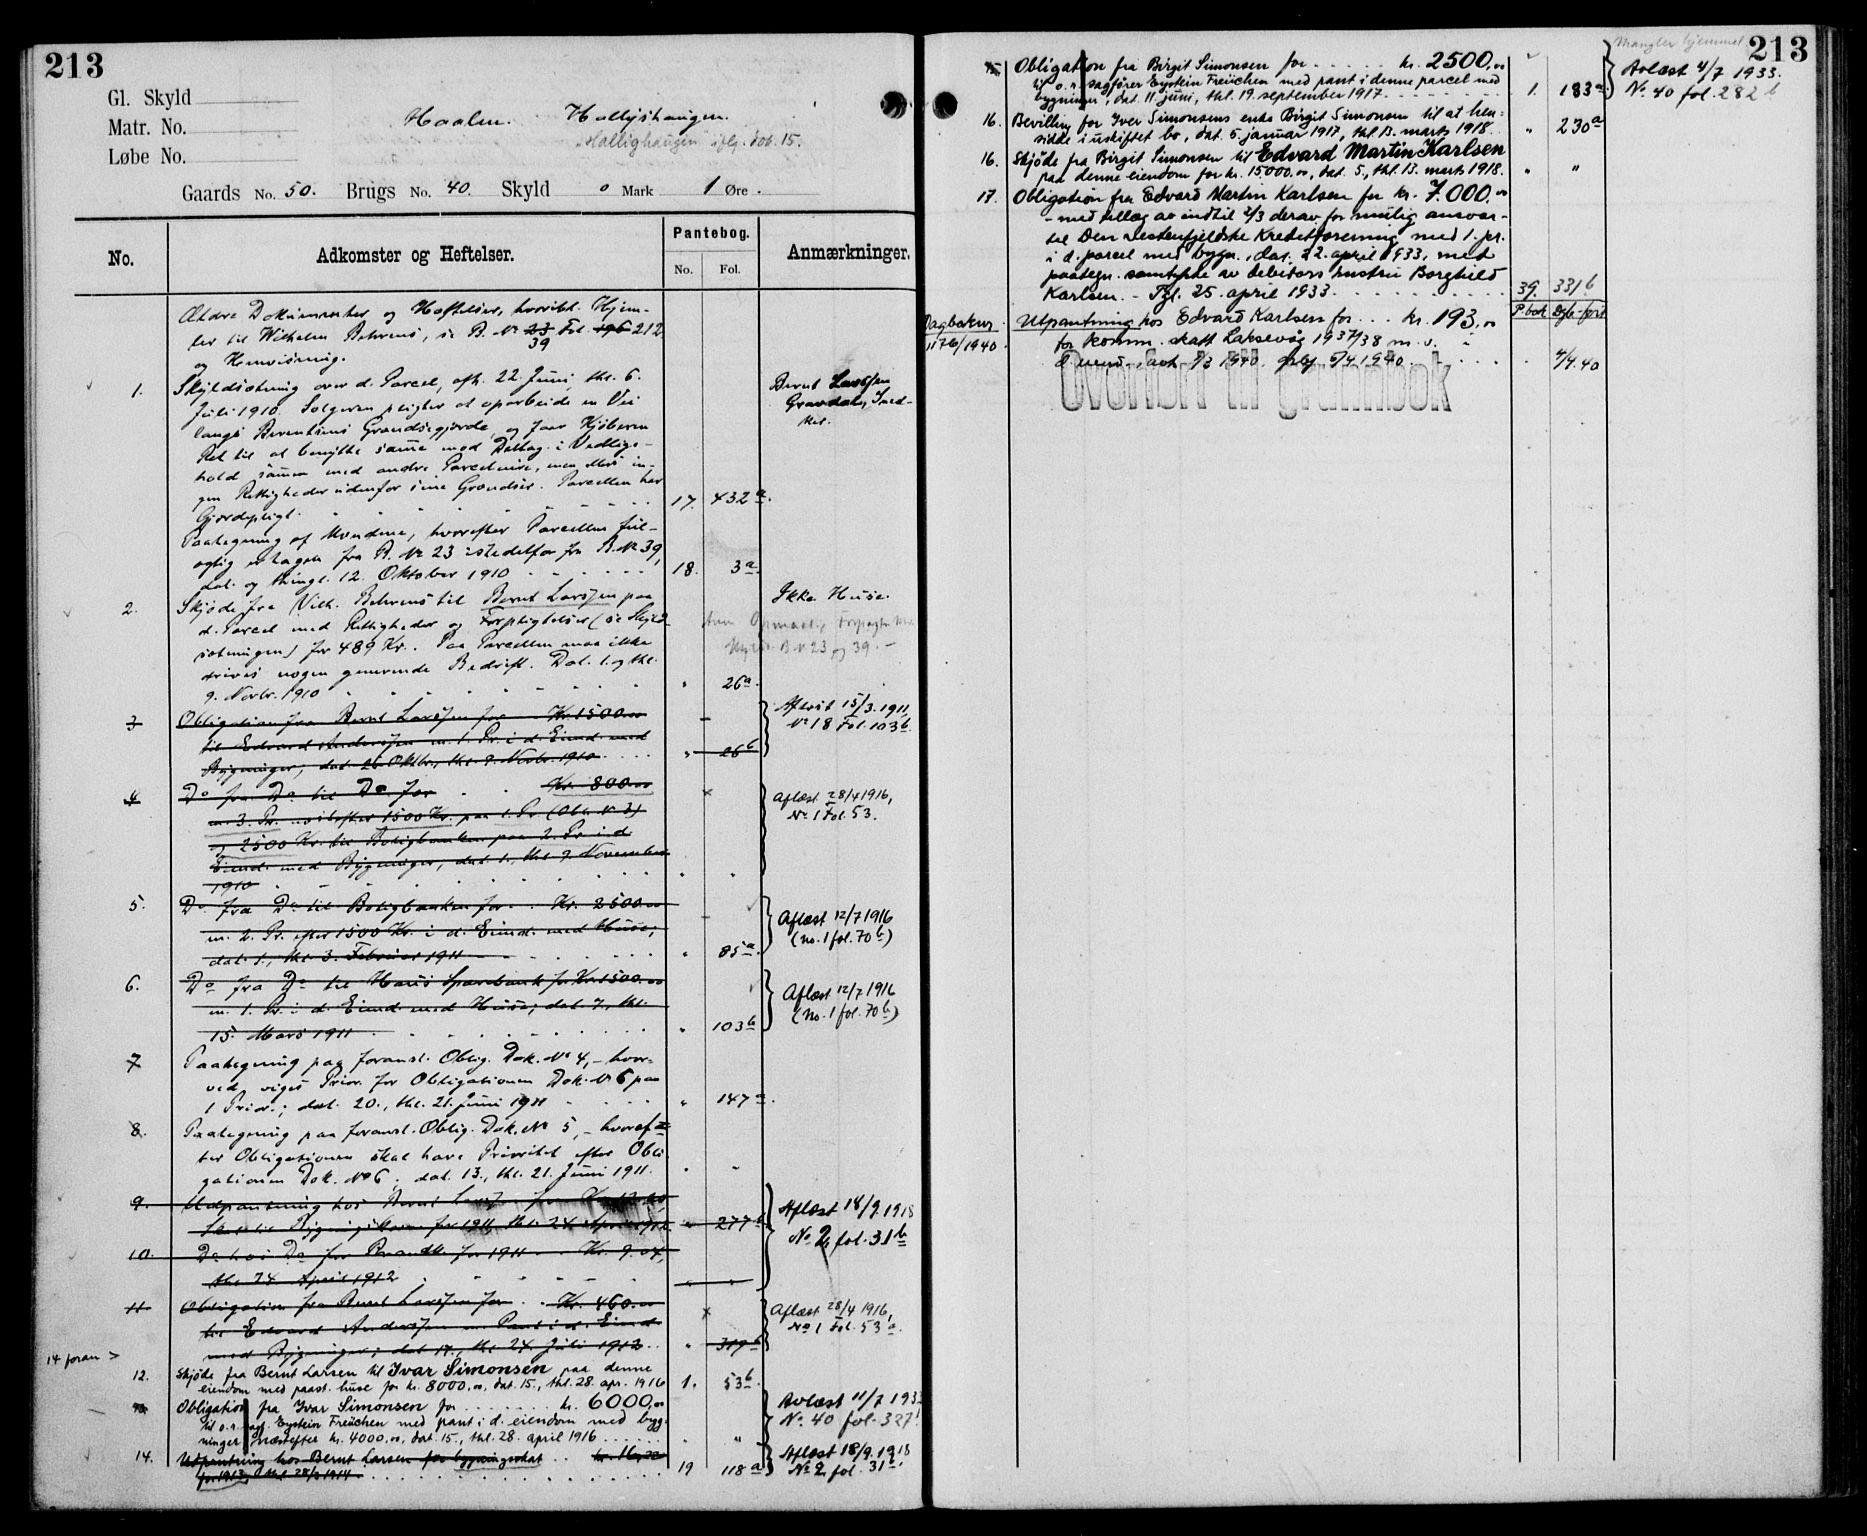 213
Gl. Skyld
Matr. No.
Løbe No.
Haalen. Hallijshaugen.
"Hallighaugen iflg. dok. 15.
Gaards No. 50. Brugs No. 40. Skyld 0 Mark 1 Øre.
No.
Adkomster og Heftelser.
Pantebog.
No. Fol.
Anmærkninger.
Ældre Dokumenter og Heftelser, hvoribl. Hjem-
ler til Wilhelm Behrens, se B. No 23 Fol. 196 212
39
og Henvisning.
1. Skyldsætning over d. Parcel, afh. 22. Juni, thl. 6.
Juli 1910. Sælgeren pligter at oparbeide en Vei
langs Berentsens Grændsegjerde, og faar Kjøberen
Ret til at benytte samme mod Deltag. i Vedlige-
hold sammen med andre Parceleiere, men ellers in-
gen Rettigheder udenfor sine Grændser. Parcellen har
Gjerdepligt. 17. 432 a.
Bernt Larssen
Gravdal, Sned-
ker.
Paategning af Mændene, hvorefter Parcellen ful-
agtig er tagen fra B. No 23 istedetfor fra B. No 39,
dat. og thingl. 12. Oktober 1910 18. 3 a.
2. Skjøde fra Vilh. Behrens til Bernt Larssen paa
d. Parcel med Rettigheder og Forpligtelser (se Skyld-
sætningen) for 489 Kr. Paa Parcellen maa ikke
drives nogen generende Bedrift. Dat. 1. og thl.
9. Novbr. 1910 " 26 a.
Ikke Huse.
B No 23 og 39.
3 Obligation fra Bernt Larssen for Kr. 1500.00
til Edvard Anderssen m. 1. Pr. i d. Eiend. med
Bygninger, dat. 26 Oktbr., thl. 9. Novbr. 1910 " 26 b
Aflæst 15/3. 1911,
No 18 Fol. 103 b.
4 Do fra Do til Do for Kr. 800.00
m. 3. Pr. næstefter 1500 Kr. paa 1. Pr. (Obl. No 3)
og 2500 Kr. til Boligbanken paa 2. Pr. i d.
Eiend. med Bygninger, dat. 1., thl. 9. November
1910 " "
Aflæst 28/4 1916,
No. 1 Fol. 53.
5. Do fra Do til Boligbanken for Kr. 2500.00
m. 2. Pr. efter 1500 Kr. i d. Eiend. med Huse,
dat. 1., thl. 3. Februar 1911 " 85 a.
Aflæst 12/7 1916
(No. 1 fol. 70 b)
6. Do fra Do til Haus Sparebank for Kr. 1500.00
m. 1. Pr. i d. Eiend. med Huse, dat. 7., thl.
15. Mars 1911 " 103 b
Aflæst 12/7 1916
(No. 1 fol. 70 b)
7 Paategning paa foranst. Oblig. Dok. No 4, - hvor-
ved viges Prior. for Obligationen Dok. No 6 paa
1 Prior.; dat. 20., thl. 21. Juni 1911 " 147 a.
8. Paategning paa foranst. Oblig. Dok. No 5, - hvoref-
ter Obligationen skal have Prioritet efter Obli-
gationen Dok. No 6; dat. 13., thl. 21. Juni 1911. " "
9. Udpantning hos Bernt Larssen for Kr.
Skat til Bygningskassen for 1911, thl. 24. April 1912 " 277 b
10. Do hos Do for Brandk. for 1911 Kr. 9.04,
thl. 24. April 1912 " "
Aflæst 18/9. 1918
No. 2, fol. 31 b
11 Obligation fra Bernt Larssen for Kr. 460.00
til Edvard Anderssen m. Pant i d. Eiend.
med Bygninger, dat. 17., thl. 24. Juli 1912 " 319 b
Aflæst 28/4 1916,
No 1 Fol. 53 a.
14 foran >
12. Skjøde fra Bernt Larsen til Ivar Simonsen paa denne
eiendom med paast. huse for kr. 8000.00, dat. 15., thl. 28. apr. 1916 1. 53 b.
13. Obligation fra Ivar Simonsen for kr. 6000.00
til o.r. sagf. Eystein Freüchen med pant i d. eiendom med byg-
ninger næstefter kr. 4000.00, dat. 15., thl. 28. april 1916 . "
Avlæst 11/7 1933
No. 40 fol. 327
14. Utpantning hos Bernt Larsen for bygningsskat kr. 16,
for 1913, thl. 28/2 1914 19 118 a
Aflæst 18/9. 1918
No. 2 fol. 31 b.
213
Mangler hjemmel.
15. Obligation fra Birgit Simonsen for kr. 2500.00
til o.r. sagfører Eystein Freüchen med pant i denne parcel med
bygninger, dat. 11 juni, thl. 19. september 1917 1. 183 a
Avlæst 4/7 1933.
No. 40 fol. 282 b
16. Bevilling for Iver Simonsens enke Birgit Simonsen til at hen-
sidde i uskiftet bo, dat. 5. januar 1917, thl. 13. marts 1918. " 230 a
16. Skjøde fra Birgit Simonsen til Edvard Martin Karlsen
paa denne eiendom for kr. 15,000.00, dat. 5., thl. 13. marts 1918. " "
17. Obligation fra Edvard Martin Karlsen for kr. 7.000.00
- med tillæg av indtil 2/3 derav for mulig ansvar -
til Den Vestenfjeldske Kreditforening med 1. pr.
i d. parcel med bygn., dat. 22. april 1933, med
paategn. samtykke av debitors hustru Borghild
Karlsen. - Tgl. 25. april 1933. 39. 331 b
P.bok Dgb-ført
Dagboknr.
1176/1940.
Utpantning hos Edvard Karlsen for kr. 193.00
for komm. skatt Laksevåg 1937/38 m.v.
1940. 5/4 1940. 4/4.40
Overført til grunnbok